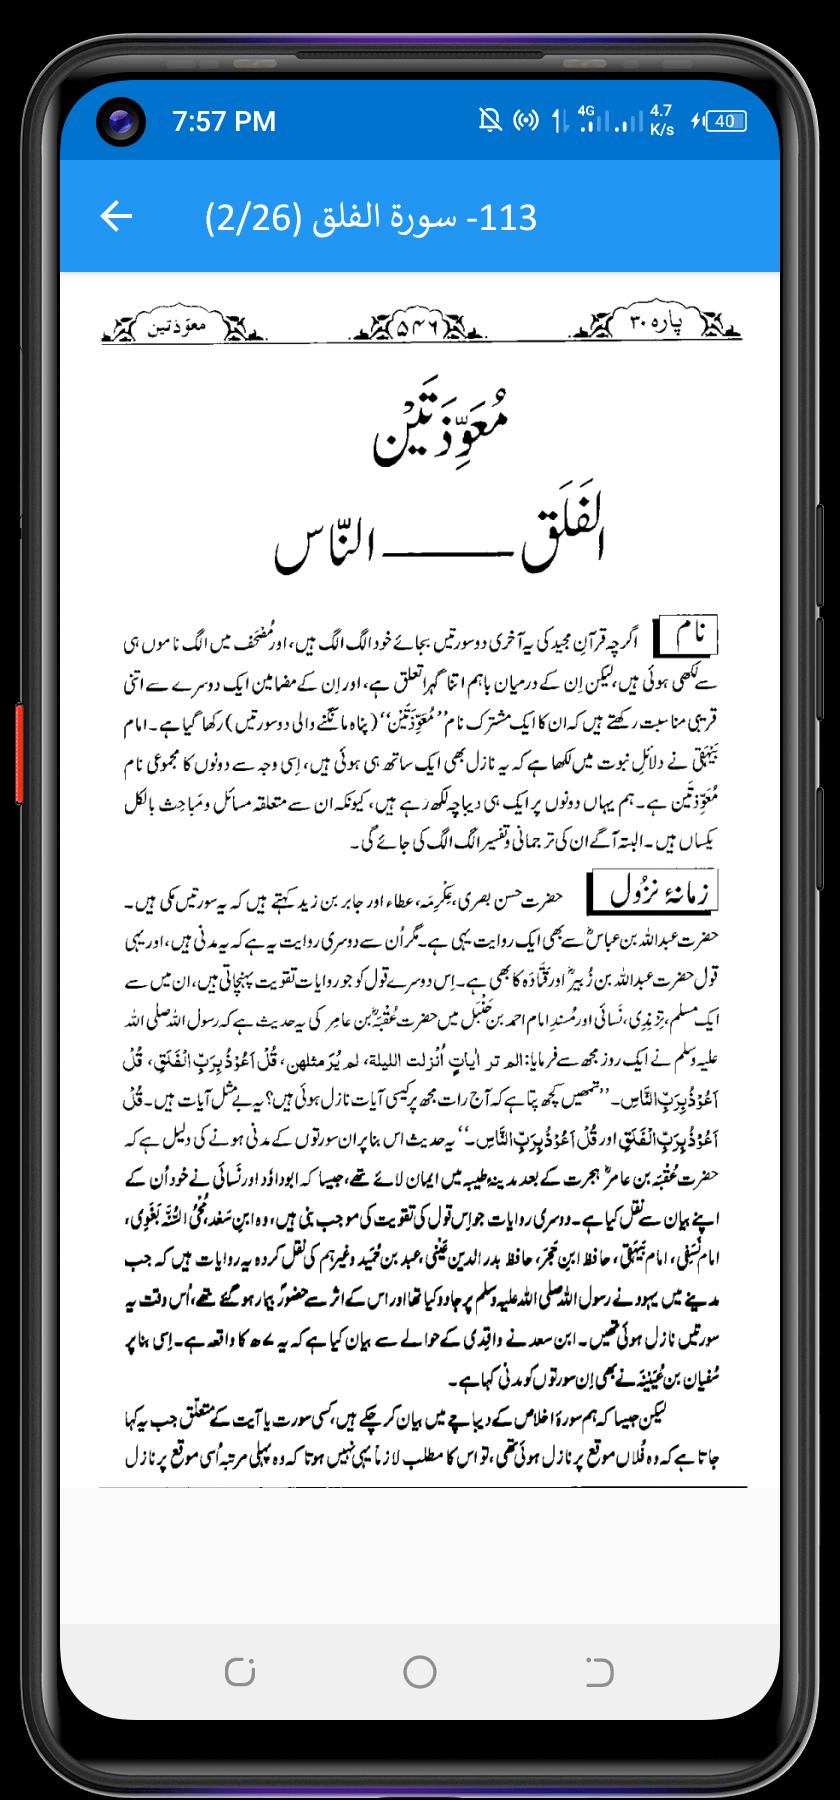 7:57 PM
4G
4.7
K/s
40
113- سورة الفلق (2/26)
پارہ ۳۰
۵۴۶
معوّذتین
مُعَوِّذَتَیْن
الفَلَق ——— النّاس
نام
اگرچہ قرآنِ مجید کی یہ آخری دو سورتیں بجائے خود الگ الگ ہیں، اور مُصْحَف میں الگ ناموں ہی
سے لکھی ہوئی ہیں، لیکن اِن کے درمیان باہم اتنا گہرا تعلق ہے، اور اِن کے مضامین ایک دوسرے سے اتنی
قریبی مناسبت رکھتے ہیں کہ ان کا ایک مشترک نام ’’مُعَوِّذَتَیْن‘‘ (پناہ مانگنے والی دو سورتیں) رکھا گیا ہے۔ امام
بَیْہَقی نے دلائلِ نبوت میں لکھا ہے کہ یہ نازل بھی ایک ساتھ ہی ہوئی ہیں، اِسی وجہ سے دونوں کا مجموعی نام
مُعَوِّذتَین ہے۔ ہم یہاں دونوں پر ایک ہی دیباچہ لکھ رہے ہیں، کیونکہ ان سے متعلقہ مسائل و مَباحِث بالکل
یکساں ہیں۔ البتہ آگے ان کی ترجمانی و تفسیر الگ الگ کی جائے گی۔
زمانۂ نزُول
حضرت حسن بصری، عِکْرِمَہ، عطاء اور جابر بن زید کہتے ہیں کہ یہ سورتیں مکی ہیں۔
حضرت عبداللہ بن عباسؓ سے بھی ایک روایت یہی ہے۔ مگر اُن سے دوسری روایت یہ ہے کہ یہ مدنی ہیں، اور یہی
قول حضرت عبداللہ بن زُبیرؓ اور قَتَادَہ کا بھی ہے۔ اِس دوسرے قول کو جو روایات تقویت پہنچاتی ہیں، ان میں سے
ایک مسلم، تِرْمِذی، نَسائی اور مُسند امام احمد بن حَنْبَل میں حضرت عُقْبَہؓ بن عامر کی یہ حدیث ہے کہ رسول اللہ صلی اللہ
علیہ وسلم نے ایک روز مجھ سے فرمایا: الم تر اٰیاتٍ اُنْزلت اللیلة، لم یُرَ مثلهن، قُلْ اَعُوْذُ بِرَبِّ الْفَلَقِ، قُلْ
اَعُوْذُ بِرَبِّ النَّاسِ۔ ’’تمھیں کچھ پتا ہے کہ آج رات مجھ پر کیسی آیات نازل ہوئی ہیں؟ یہ بے مثل آیات ہیں۔ قُلْ
اَعُوْذُ بِرَبِّ الْفَلَقِ اور قُلْ اَعُوْذُ بِرَبِّ النَّاسِ۔‘‘ یہ حدیث اس بنا پر ان سورتوں کے مدنی ہونے کی دلیل ہے کہ
حضرت عُقْبَہ بن عامرؓ ہجرت کے بعد مدینۂ طیبہ میں ایمان لائے تھے، جیسا کہ ابوداؤد اور نَسائی نے خود اُن کے
اپنے بیان سے نقل کیا ہے۔ دوسری روایات جو اِس قول کی تقویت کی موجب بنی ہیں، وہ ابنِ سَعْد، مُحْیُ السُّنَّہ بَغَوِی،
امام نَسَفِی، امام بَیْہَقِی، حافظ ابنِ حَجَر، حافظ بدر الدین عَیْنی، عبد بن حُمَید وغیرہم کی نقل کردہ یہ روایات ہیں کہ جب
مدینے میں یہود نے رسول اللہ صلی اللہ علیہ وسلم پر جادو کیا تھا اور اس کے اثر سے حضورؐ بیمار ہو گئے تھے، اُس وقت یہ
سورتیں نازل ہوئی تھیں۔ ابن سعد نے واقدی کے حوالے سے بیان کیا ہے کہ یہ ۷ھ کا واقعہ ہے۔ اِسی بنا پر
سُفیان بن عُیَیْنَہ نے بھی اِن سورتوں کو مدنی کہا ہے۔
لیکن جیسا کہ ہم سورۂ اخلاص کے دیباچے میں بیان کر چکے ہیں، کسی سورت یا آیت کے متعلّق جب یہ کہا
جاتا ہے کہ وہ فُلاں موقع پر نازل ہوئی تھی، تو اس کا مطلب لازماً یہی نہیں ہوتا کہ وہ پہلی مرتبہ اُسی موقع پر نازل